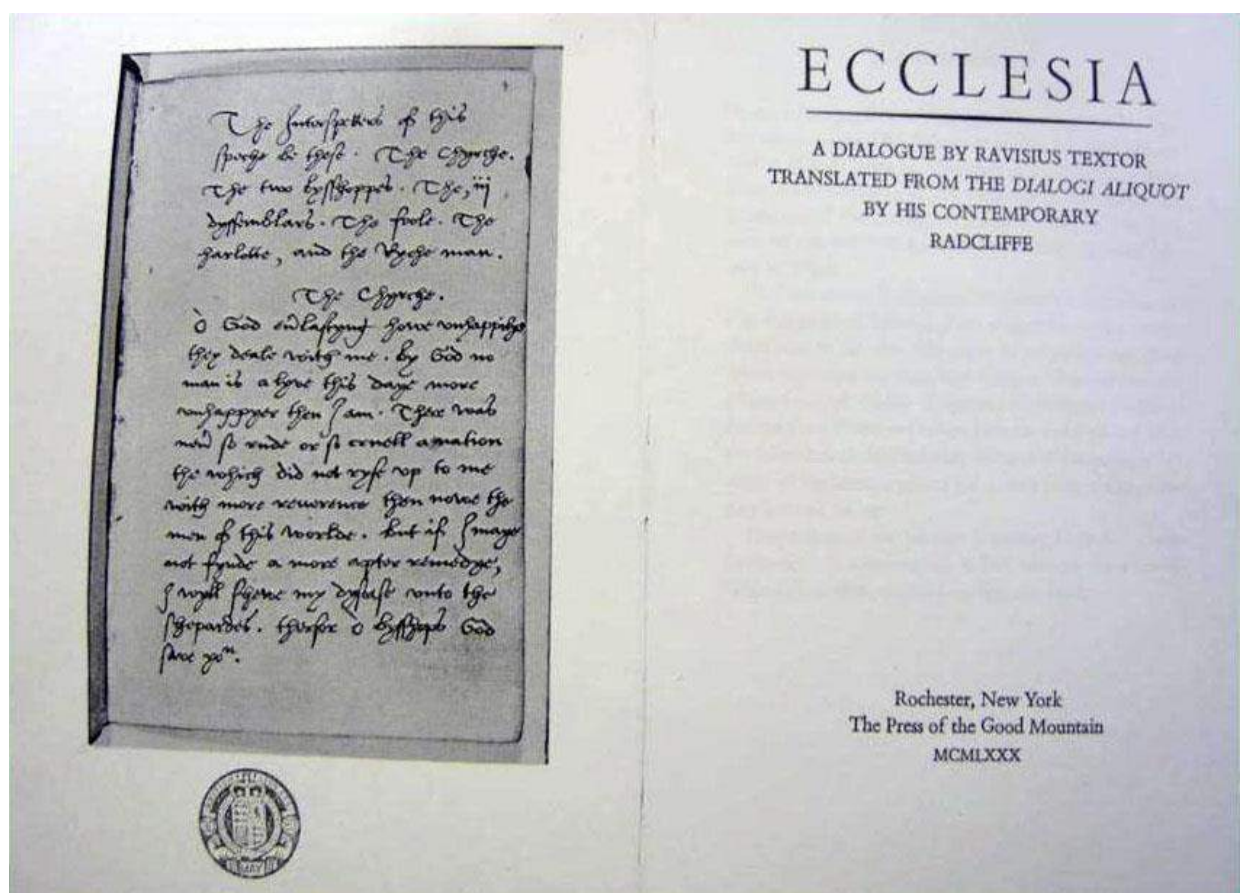 The Interspekers of this
speche be these. The Chyrche.
The two bysshoppes. The iij
dyssemblars. The foole. The
harlotte, and the Ryche man.
The Chyrche.
ò God evlastyng howe unhappilye
they deale with me. by God no
man is alyve this daye more
unhappyer then I am. There was
nev so rude or so cruell anation
the which did not ryse up to me
with more reverence then nowe the
men of this worlde. but if I maye
not fynde a more apter remedye,
I wyll shewe my dysease unto the
schepardes. therfor ò bysshops God
save you.
ECCLESIA
A DIALOGUE BY RAVISIUS TEXTOR
TRANSLATED FROM THE DIALOGI ALIQUOT
BY HIS CONTEMPORARY
RADCLIFFE
Rochester, New York
The Press of the Good Mountain
MCMLXXX